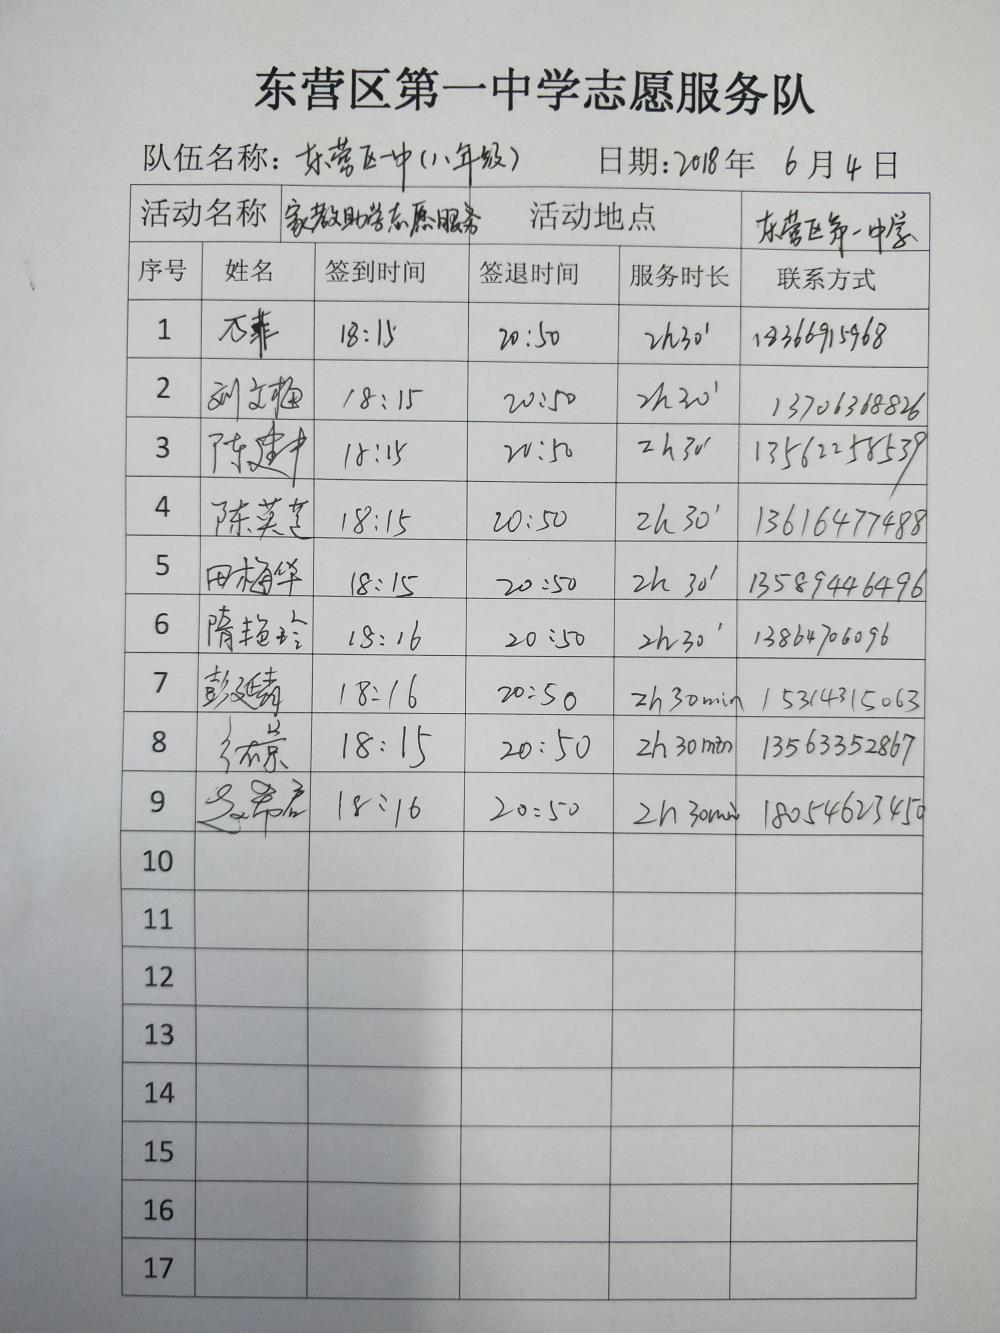 东营区第一中学志愿服务队
队伍名称: 东营区一中(八年级) 日期: 2018年 6月4日
活动名称 家教助学志愿服务 活动地点 东营区第一中学
序号 姓名 签到时间 签退时间 服务时长 联系方式
1 万菲 18:15 20:50 2h30' 18366915968
2 刘文梅 18:15 20:50 2h30' 13706368826
3 陈建中 18:15 20:50 2h30' 13562258539
4 陈英莲 18:15 20:50 2h30' 13616477488
5 田梅华 18:15 20:50 2h 30' 13589446496
6 隋艳玲 18:16 20:50 2h30' 13864706096
7 彭延青 18:16 20:50 2h30min 15314315063
8 18:15 20:50 2h30min 13563352867
9 18:16 20:50 2h30min 18054623450
10
11
12
13
14
15
16
17